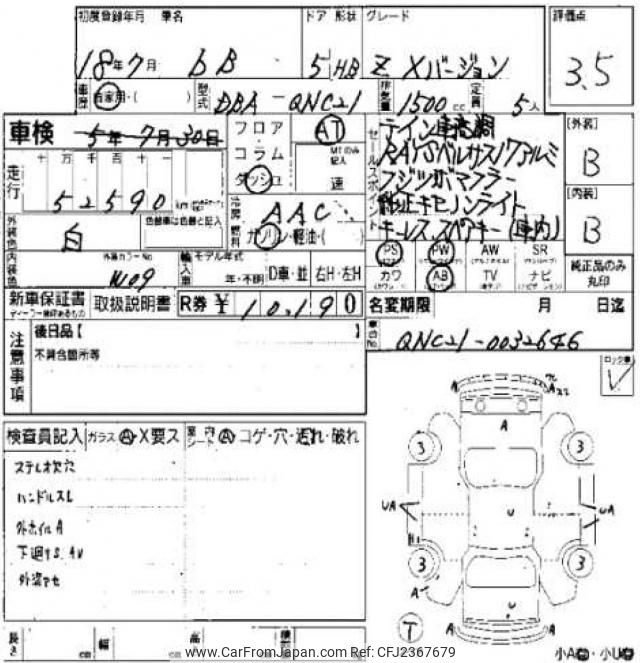 初度登録年月 車名 ドア 形状 グレード 評価点
18年7月 bB 5 HB Z Xバージョン 3.5
車歴 自家用・( ) 型式 DBA-QNC21 排気量 1500cc 定員 5人
車検 5年7月30日 フロア AT セールスポイント
コラム MTのみ記入 RAYSベルサス17アルミ [外装]
走行 十 万 千 百 十 ダッシュ 速 フジツボマフラー B
52590 km 冷房 AAC 純正キセノンライト [内装]
外装色 白 色替車は色番と記入 燃料 ガソリン・軽油・( ) キーレス スペアキー(車内) B
内装色 外装カラーNo. W09 輸入車 モデル年式 年・不明 D車・並 右H・左H
PS PW AW SR 純正品のみ丸印
カワ AB TV ナビ
新車保証書 取扱説明書 R券 ¥ 10190 名変期限 月 日迄
ディーラー捺印あるもの
注意事項 後日品【 】 車台No. QNC21-0032646
不具合箇所等 ロック有
検査員記入 ガラス A・X要ス 室内シート A・コゲ・穴・汚れ・破れ
ステレオ欠穴
ハンドルスレ
外ホイルA
下廻りS.AU
外装ヤセ
A A
A
3 3
UA U UA
3 3
A U
T A A
長さ cm 幅 cm 高
小A・小U
www.CarFromJapan.com Ref: CFJ2367679